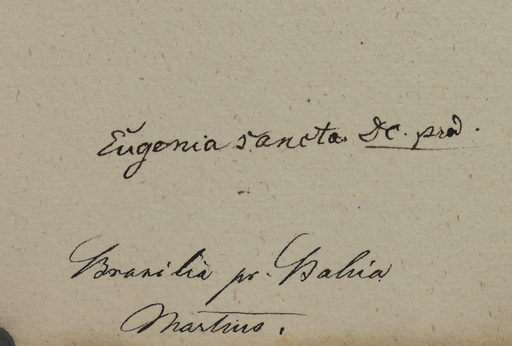 Eugenia sancta DC. prod.
Brasilia pr. Bahia
Martius.